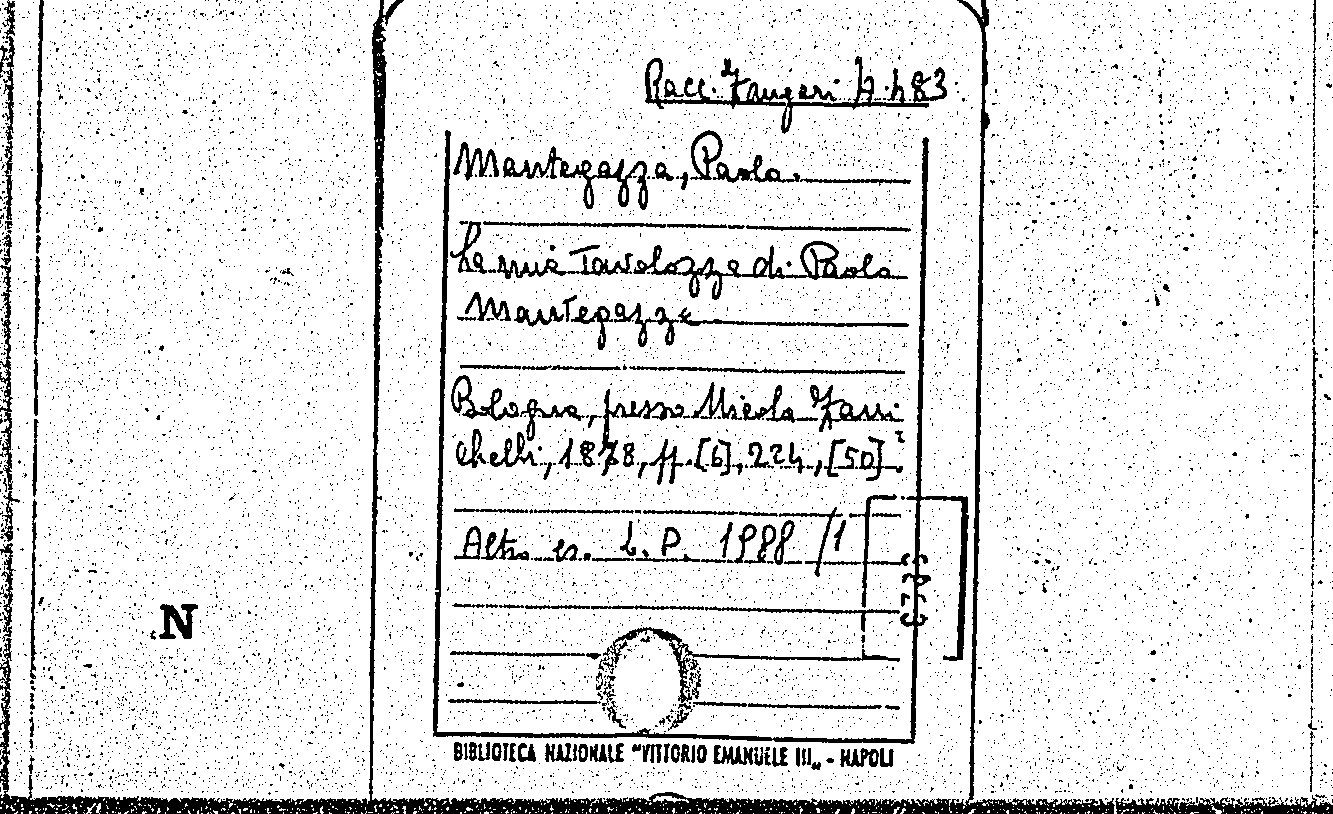 Racc. Zangari A. 483
Mantegazza, Paolo.
La mia Tavolozza di Paolo
Mantegazza
Bologna, presso Nicola Zani
chelli, 1878, pp. [6], 224, [50].
Altro es. L. P. 1988 /1
N
BIBLIOTECA NAZIONALE "VITTORIO EMANUELE III„ - NAPOLI